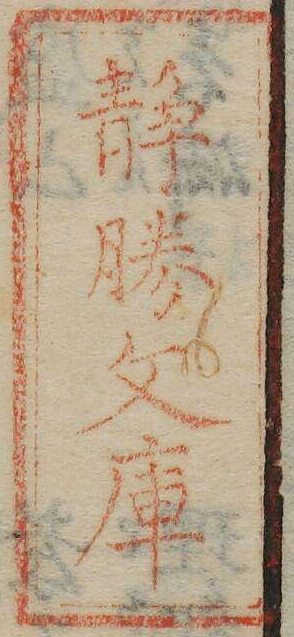 静勝文庫